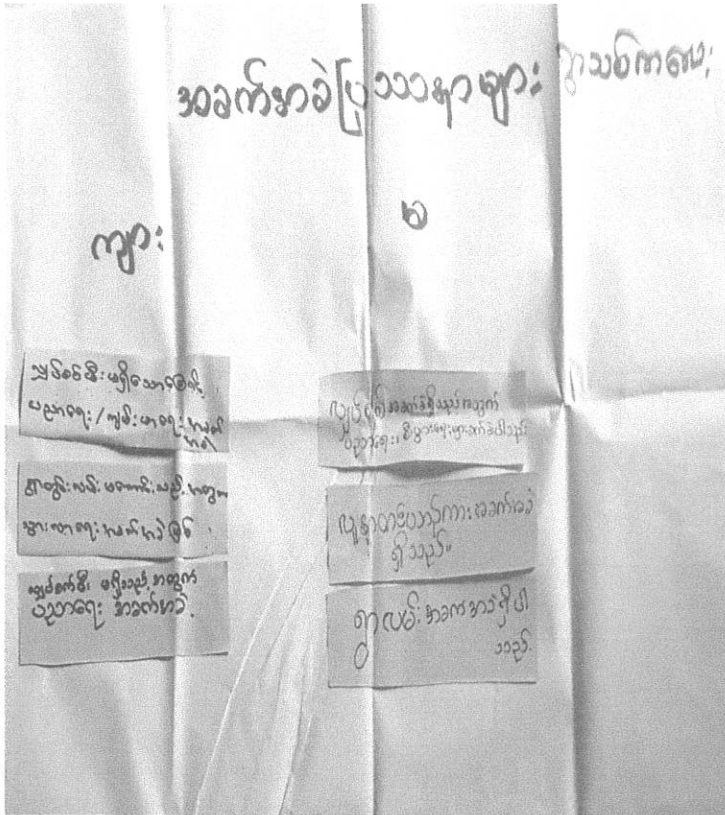 အခက်အခဲပြဿနာများ ရွာသစ်ကလေး
ကျား
မ
လျှပ်စစ်မီး မရှိသောကြောင့်
ပညာရေး/ကျန်းမာရေး အခက်
အခဲ
ရွာတွင်းလမ်း မကောင်းသည့်အတွက်
သွားလာရေး အခက်အခဲဖြစ်
လျှပ်စစ်မီး မရှိသည့်အတွက်
ပညာရေး အခက်အခဲ
လျှပ်စစ် အခက်ခဲရှိသည့်အတွက်
ပညာရေး၊ စီးပွားရေးများခက်ခဲပါသည်
လူနာတင်ယာဉ်ကားအခက်အခဲ
ရှိသည်။
ရွာလမ်းအခက်အခဲရှိပါ
သည်